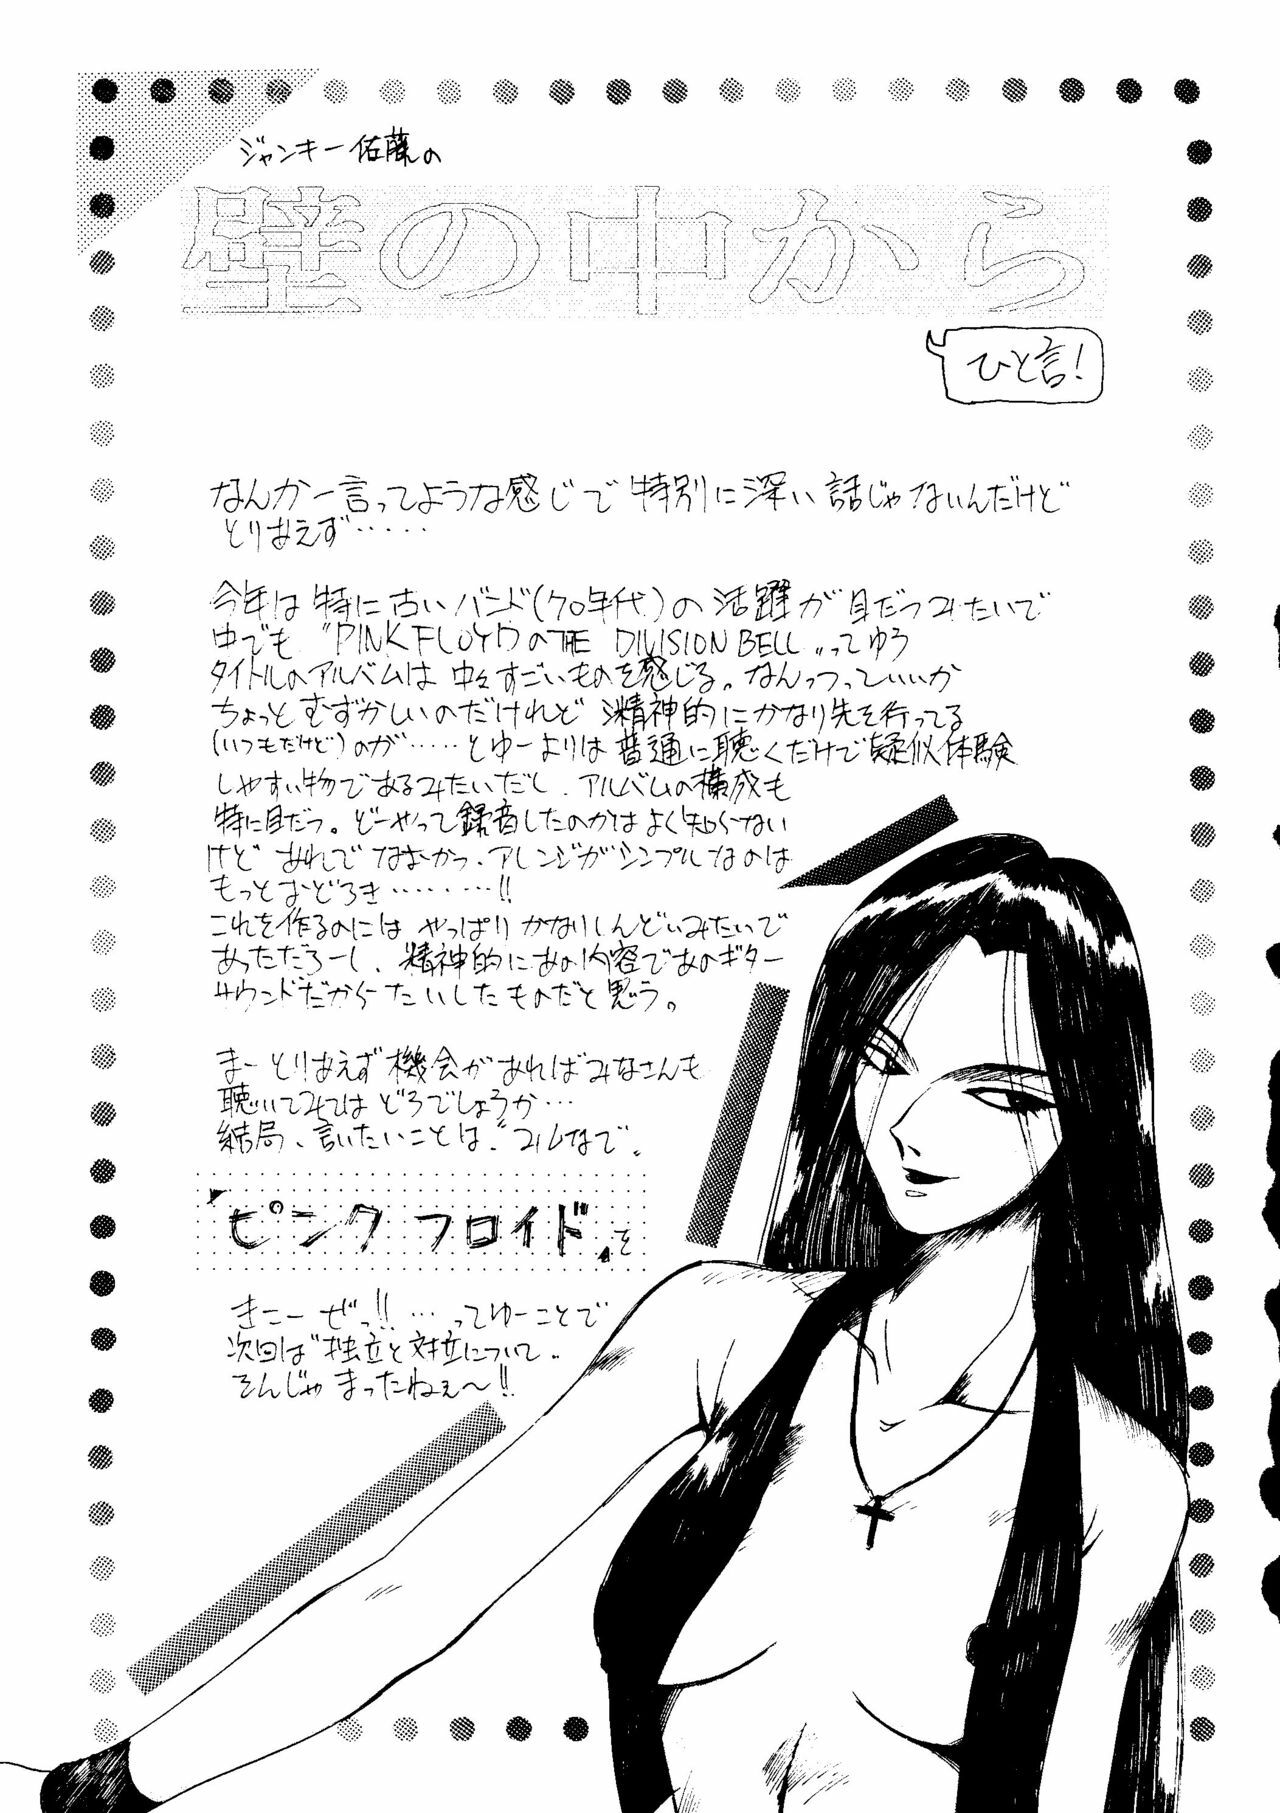 ジャンキー佐藤の
壁の中から
ひと言!
なんか一言ってような感じで特別に深い話じゃないんだけど
とりあえず‥‥‥
今年は特に古いバンド(70年代)の活躍が目だつみたいで
中でも〝PINK FLOYDのTHE DIVISION BELL〟ってゆう
タイトルのアルバムは中々すごいものを感じる。なんつっていいか
ちょっとむずかしいのだけれど 精神的にかなり先を行ってる
(いつもだけど)のが‥‥‥とゆーよりは普通に聴くだけで疑似体験
しやすい物であるみたいだし、アルバムの構成も
特に目だつ。どーやって録音したのかはよく知らない
けど あれでなおかつ、アレンジがシンプルなのは
もっとおどろき‥‥‥‥!!
これを作るのには やっぱりかなりしんどいみたいで
あっただろーし、精神的にあの内容であのギター
サウンドだからたいしたものだと思う。
まーとりあえず機会があればみなさんも
聴いてみてはどうでしょうか‥‥
結局、言いたいことは〝コレなで〟
「ピンクフロイド」を
きこーぜっ!!‥‥ってゆーことで
次回は〝独立と対立について〟
そんじゃまったねぇ〜!!